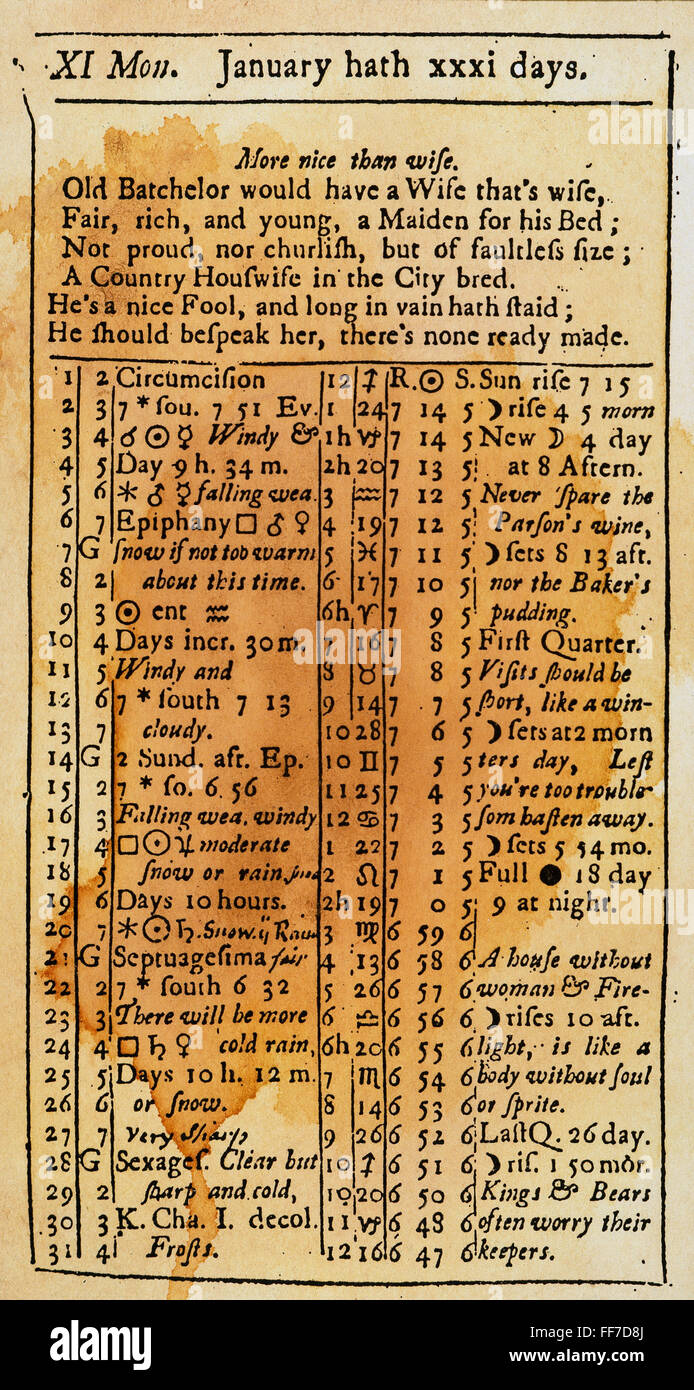 XI Mon. January hath xxxi days.
More nice than wiſe.
Old Batchelor would have a Wife that's wiſe,
Fair, rich, and young, a Maiden for his Bed ;
Not proud, nor churliſh, but of faultleſs ſize ;
A Country Houſwife in the City bred.
He's a nice Fool, and long in vain hath ſtaid ;
He ſhould beſpeak her, there's none ready made.
1 2 Circumciſion 12 ♐ R. ☉ S. Sun riſe 7 15
2 3 7 * ſou. 7 51 Ev. 1 24 7 14 5 ☽ riſe 4 5 morn
3 4 ☌ ☉ ☿ Windy & 1h ♑ 7 14 5 New ☽ 4 day
4 5 Day 9 h. 34 m. 2h 20 7 13 5 at 8 Aftern.
5 6 ⚹ ♂ ☿ falling wea. 3 ♒ 7 12 5 Never ſpare the
6 7 Epiphany □ ♂ ♀ 4 19 7 12 5 Parſon's wine,
7 G ſnow if not too warm 5 ♓ 7 11 5 ☽ ſets 8 13 aft.
8 2 about this time. 6 17 7 10 5 nor the Baker's
9 3 ☉ ent ♒ 6h ♈ 7 9 5 pudding.
10 4 Days incr. 30 m. 7 16 7 8 5 Firſt Quarter.
11 5 Windy and 8 ♉ 7 8 5 Viſits ſhould be
12 6 7 * ſouth 7 13 9 14 7 7 5 ſhort, like a win-
13 7 cloudy. 10 28 7 6 5 ☽ ſets at 2 morn
14 G 2 Sund. aft. Ep. 10 ♊ 7 5 5 ters day, Leſt
15 2 7 * ſo. 6. 56 11 25 7 4 5 you're too trouble
16 3 Falling wea. windy 12 ♋ 7 3 5 ſom haſten away.
17 4 □ ☉ ♃ moderate 1 22 7 2 5 ☽ ſets 5 54 mo.
18 5 ſnow or rain, 2 ♌ 7 1 5 Full ● 18 day
19 6 Days 10 hours. 2h 19 7 0 5 9 at night.
20 7 ⚹ ☉ ♄. Snow. Rain 3 ♍ 6 59 6
21 G Septuageſima fair 4 13 6 58 6 A houſe without
22 2 7 * ſouth 6 32 5 26 6 57 6 woman & Fire-
23 3 There will be more 6 ♎ 6 56 6 ☽ riſes 10 aft.
24 4 □ ♄ ♀ cold rain, 6h 20 6 55 6 light, is like a
25 5 Days 10 h. 12 m. 7 ♏ 6 54 6 body without ſoul
26 6 or ſnow. 8 14 6 53 6 or ſprite.
27 7 Very ſharp 9 26 6 52 6 Laſt Q. 26 day.
28 G Sexageſ. Clear but 10 ♐ 6 51 6 ☽ riſ. 1 50 mor.
29 2 ſharp and cold, 10 20 6 50 6 Kings & Bears
30 3 K. Cha. I. decol. 11 ♑ 6 48 6 often worry their
31 4 Froſts. 12 16 6 47 6 keepers.
alamy
Image ID: FF7D8J
www.alamy.com